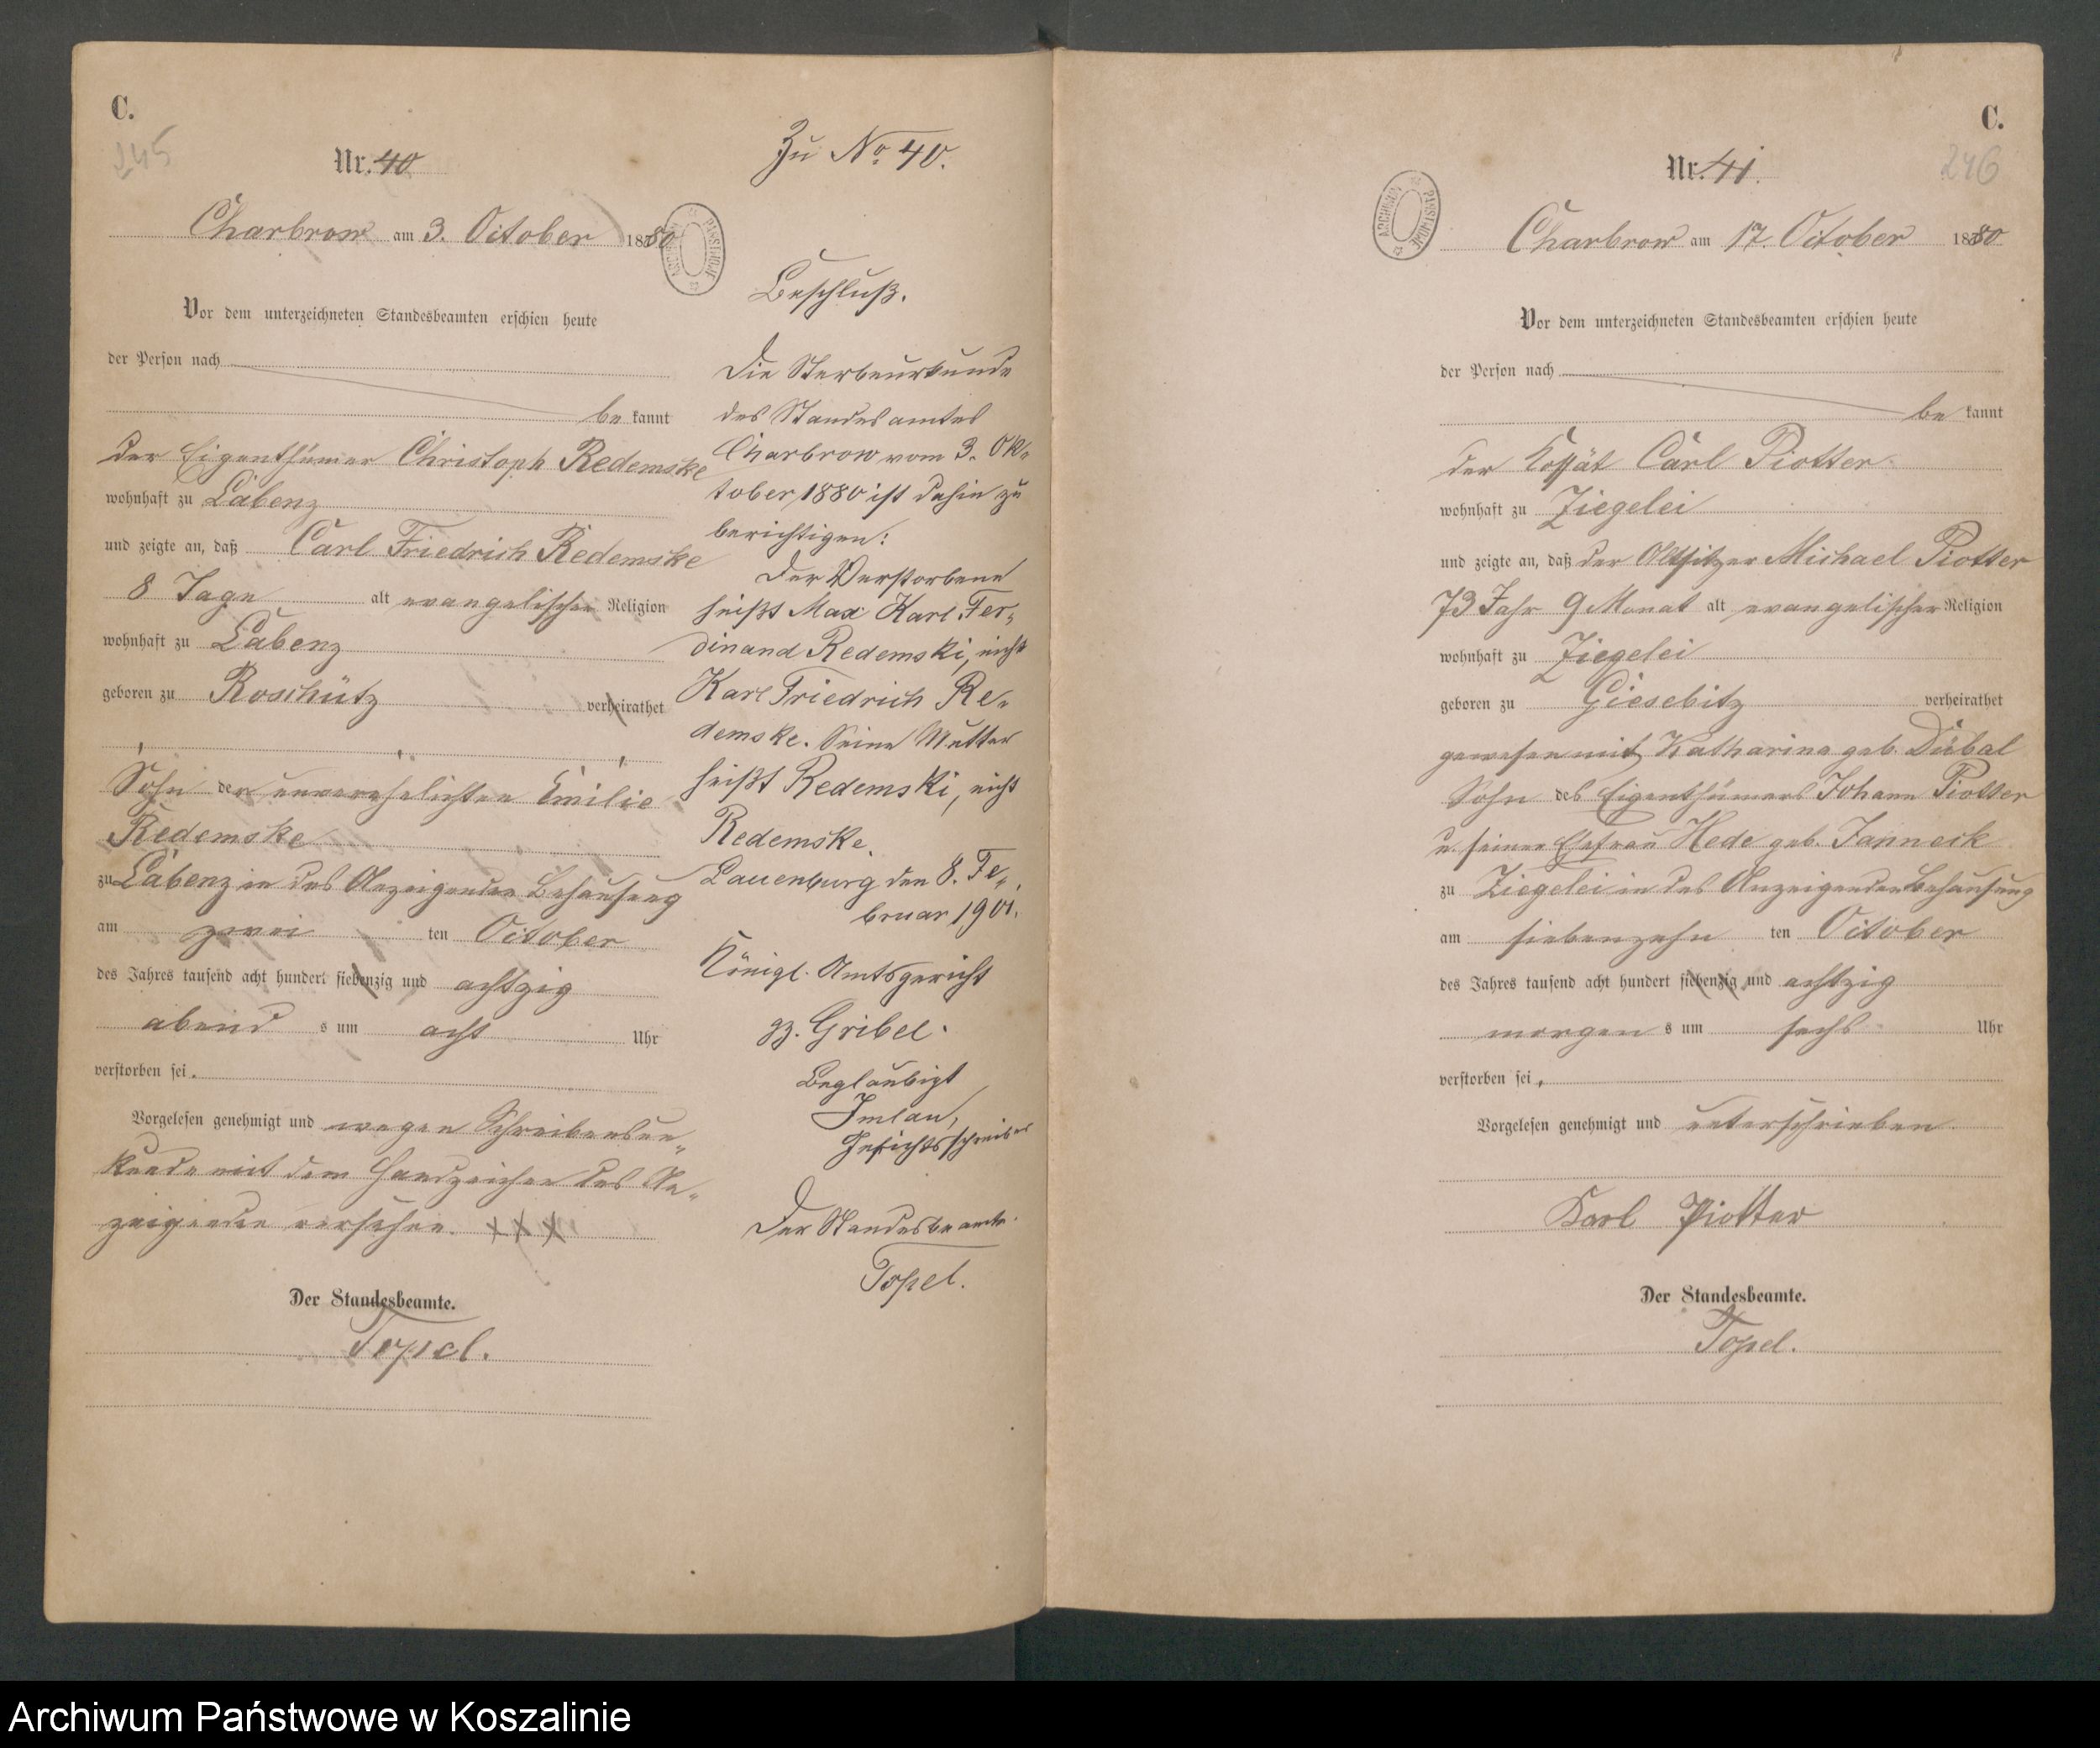 C.
245
Nr. 40
Charbrow am 3. October 1880
Vor dem unterzeichneten Standesbeamten erschien heute
der Person nach
be kannt
der Eigenthümer Christoph Redemske
wohnhaft zu Labenz
und zeigte an, daß Carl Friedrich Redemske
8 Tage alt evangelischer Religion
wohnhaft zu Labenz
geboren zu Roschütz verheirathet
Sohn der unverehelichten Emilie
Redemske
zu Labenz in des Anzeigenden Behausung
am zwei ten October
des Jahres tausend acht hundert siebenzig und achtzig
abend s um acht Uhr
verstorben sei.
Vorgelesen genehmigt und wegen Schreibensun-
kunde mit dem Handzeichen des An-
zeigenden versehen. XXX
Der Standesbeamte.
Topel.
Zu No. 40.
Beschluß.
Die Sterbeurkunde
des Standesamtes
Charbrow vom 3. Ok-
tober 1880 ist dahin zu
berichtigen:
Der Verstorbene
heißt Max Karl Fer-
dinand Redemski, nicht
Karl Friedrich Re-
demske. Seine Mutter
heißt Redemski, nicht
Redemske.
Lauenburg den 8. Fe-
bruar 1901.
Königl. Amtsgericht
gz. Gribel.
Beglaubigt
Imlau,
Gerichtsschreiber
Der Standesbeamte.
Topel.
ARCHIWUM PAŃSTWOWE
C.
246
Nr. 41.
Charbrow am 17. October 1880
Vor dem unterzeichneten Standesbeamten erschien heute
der Person nach
be kannt
der Kossät Carl Piotter
wohnhaft zu Ziegelei
und zeigte an, daß der Altsitzer Michael Piotter
73 Jahr 9 Monat alt evangelischer Religion
wohnhaft zu Ziegelei
geboren zu Giesebitz verheirathet
gewesen mit Katharina geb. Dübal
Sohn des Eigenthümers Johann Piotter
u. seiner Ehefrau Hede geb. Janneck
zu Ziegelei in des Anzeigenden Behausung
am siebenzehn ten October
des Jahres tausend acht hundert siebenzig und achtzig
morgen s um sechs Uhr
verstorben sei.
Vorgelesen genehmigt und unterschrieben.
Karl Piotter
Der Standesbeamte.
Topel.
ARCHIWUM PAŃSTWOWE
Archiwum Państwowe w Koszalinie